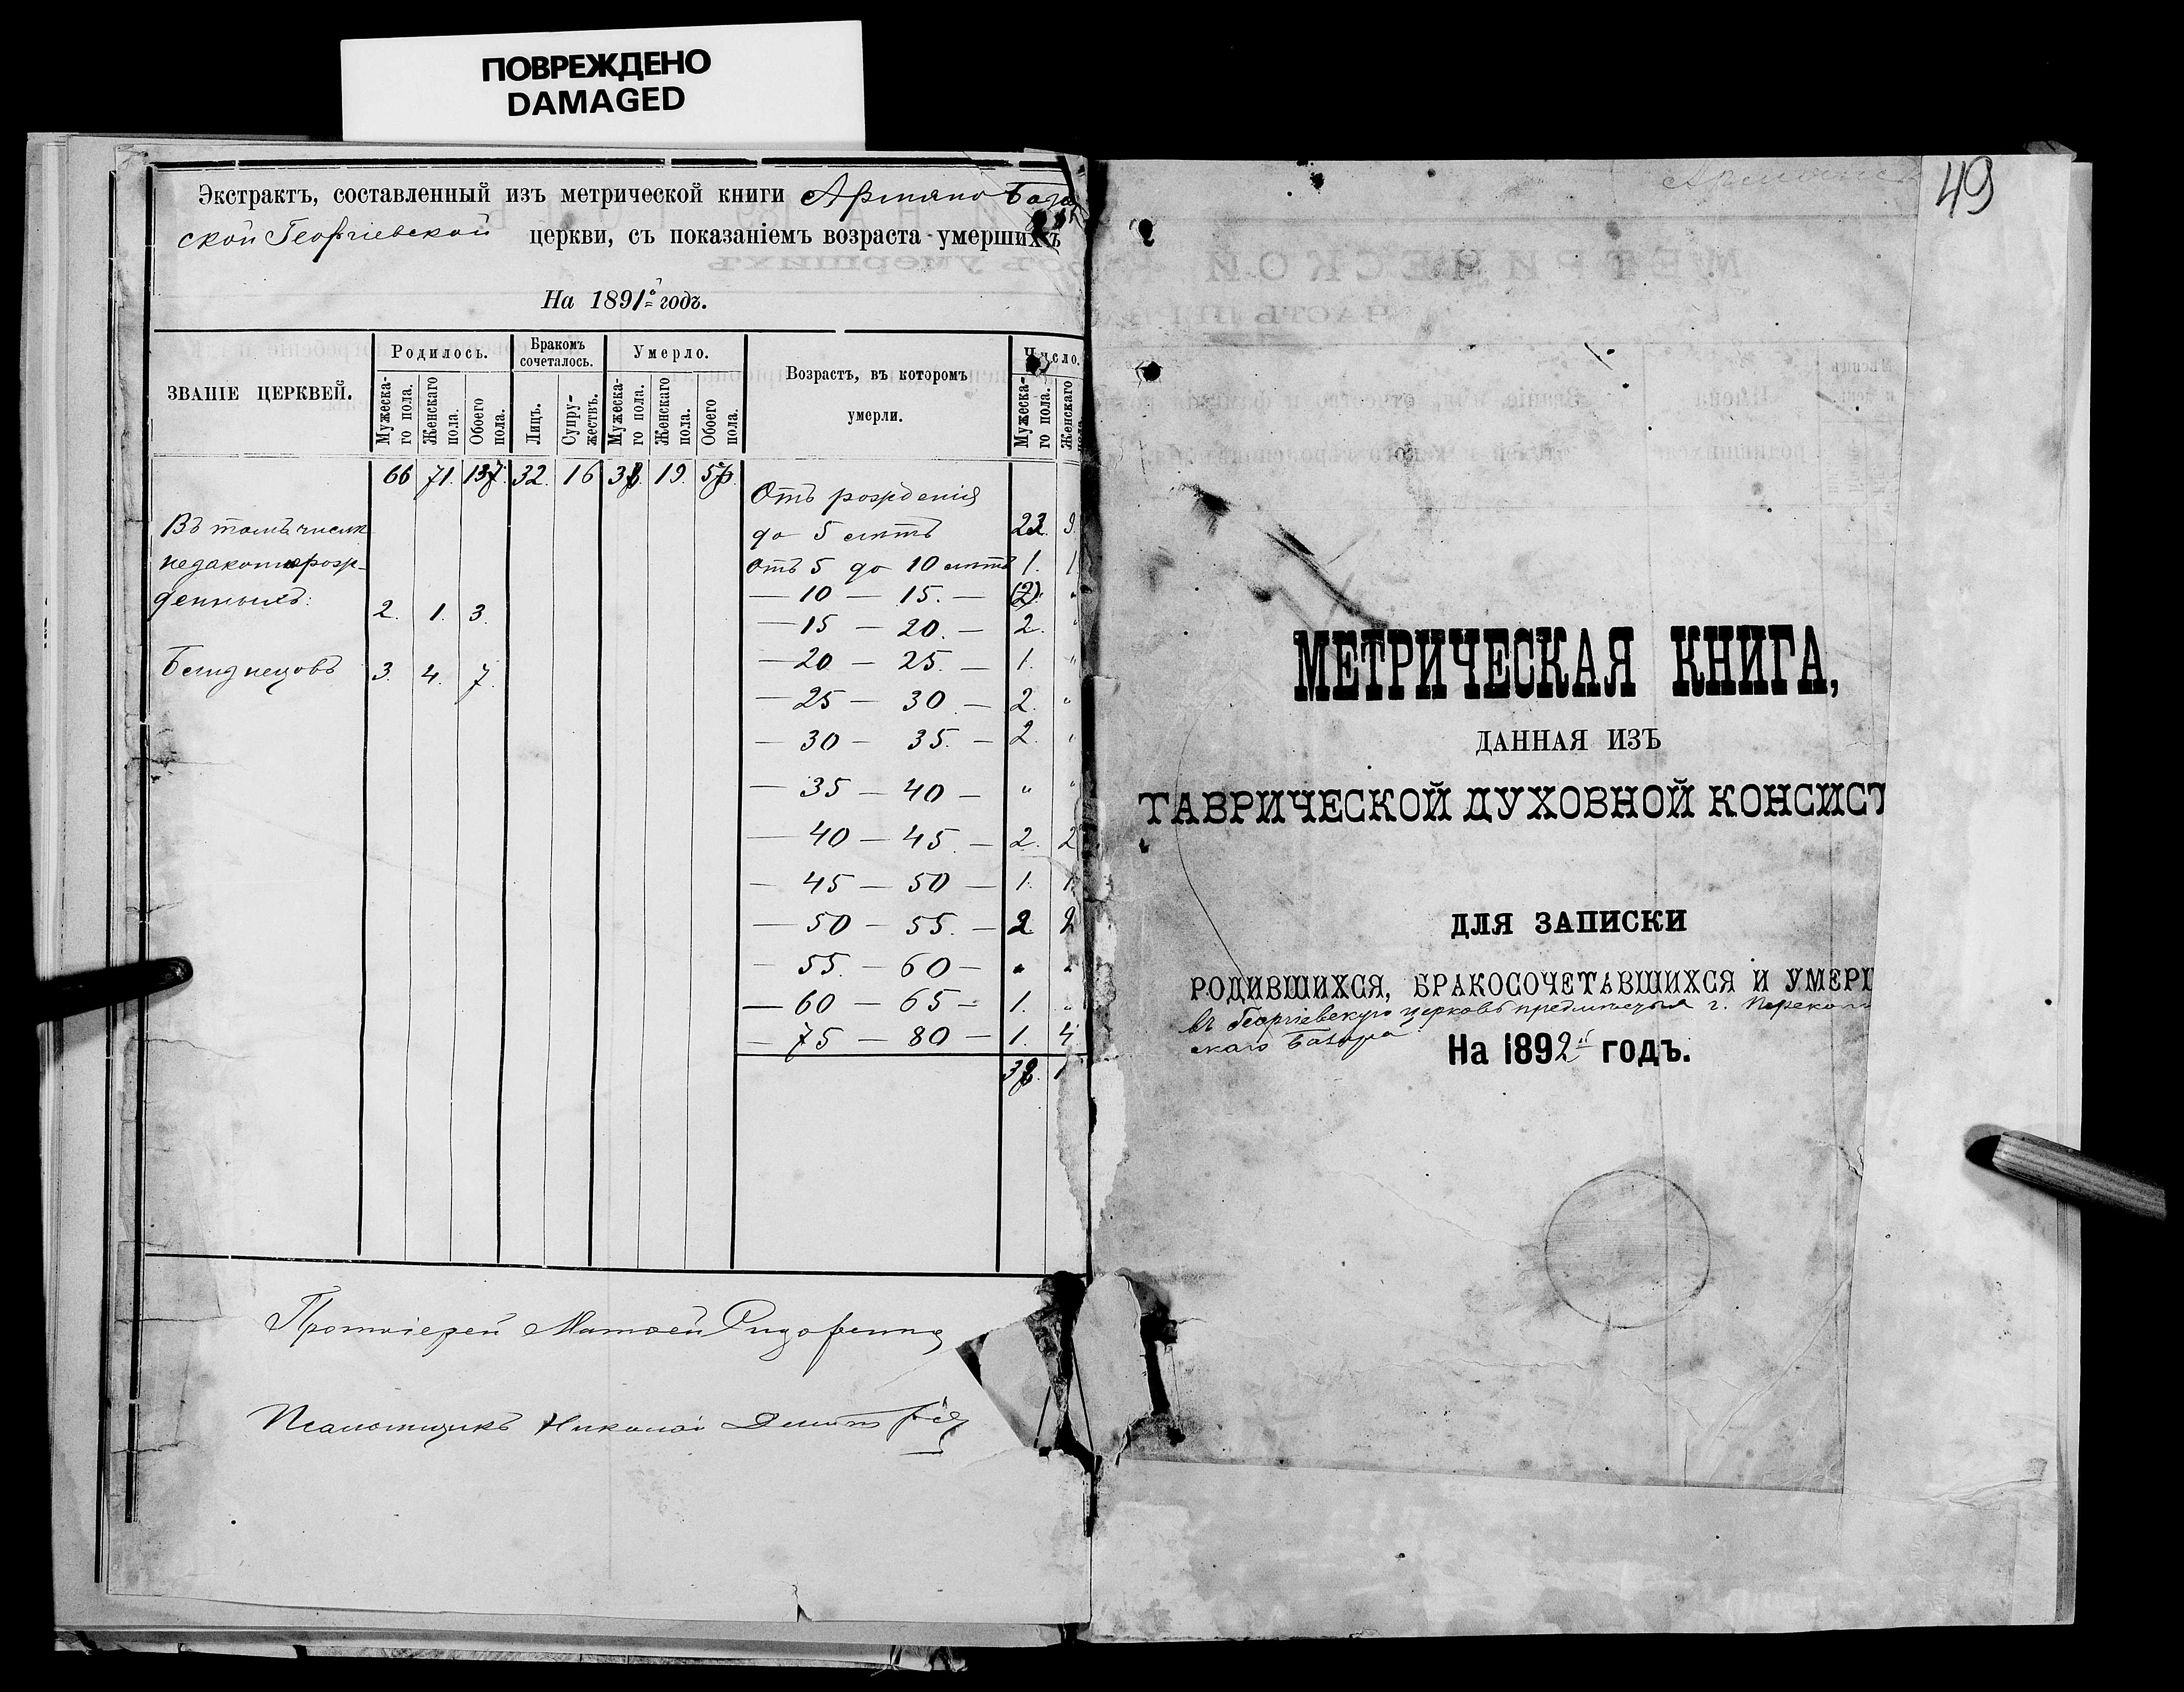 ПОВРЕЖДЕНО
DAMAGED
Экстрактъ, составленный изъ метрической книги Армяно База
ской Георгіевской церкви, съ показаніемъ возраста умершихъ
На 1891й годъ.
ЗВАНІЕ ЦЕРКВЕЙ.
Родилось.
Бракомъ сочеталось.
Умерло.
Возрастъ, въ которомъ умерли.
Число.
Мужеска-го пола.
Женскаго пола.
Обоего пола.
Лицъ.
Супру-жествъ.
Мужеска-го пола.
Женскаго пола.
Обоего пола.
Мужеска-го пола.
Женскаго пола.
66 71. 137. 32. 16 38. 19. 57.
Отъ рожденія
до 5 лѣтъ 23. 9.
Въ томъ числѣ
незаконнорож-
денныхъ: 2. 1. 3.
Близнецовъ 3. 4. 7.
отъ 5 до 10 лѣтъ 1. 1
— 10 — 15. — (2). "
— 15 — 20. — 2. "
— 20 — 25. — 1. "
— 25 — 30. — 2. "
— 30 — 35. — 2. "
— 35 — 40 — " "
— 40 — 45. — 2. 2
— 45 — 50 — 1. 1.
— 50 — 55. — 2. 2
— 55. — 60 — " "
— 60 — 65 — 1. "
— 75 — 80 — 1. 4
38. 1
Протоіерей Матвей
Псаломщикъ Николай
49
МЕТРИЧЕСКАЯ КНИГА,
ДАННАЯ ИЗЪ
ТАВРИЧЕСКОЙ ДУХОВНОЙ КОНСИСТ
ДЛЯ ЗАПИСКИ
РОДИВШИХСЯ, БРАКОСОЧЕТАВШИХСЯ И УМЕРШ
въ Георгіевскую церковь предмѣстья г. Перекопа
скаго Базара
На 1892й годъ.